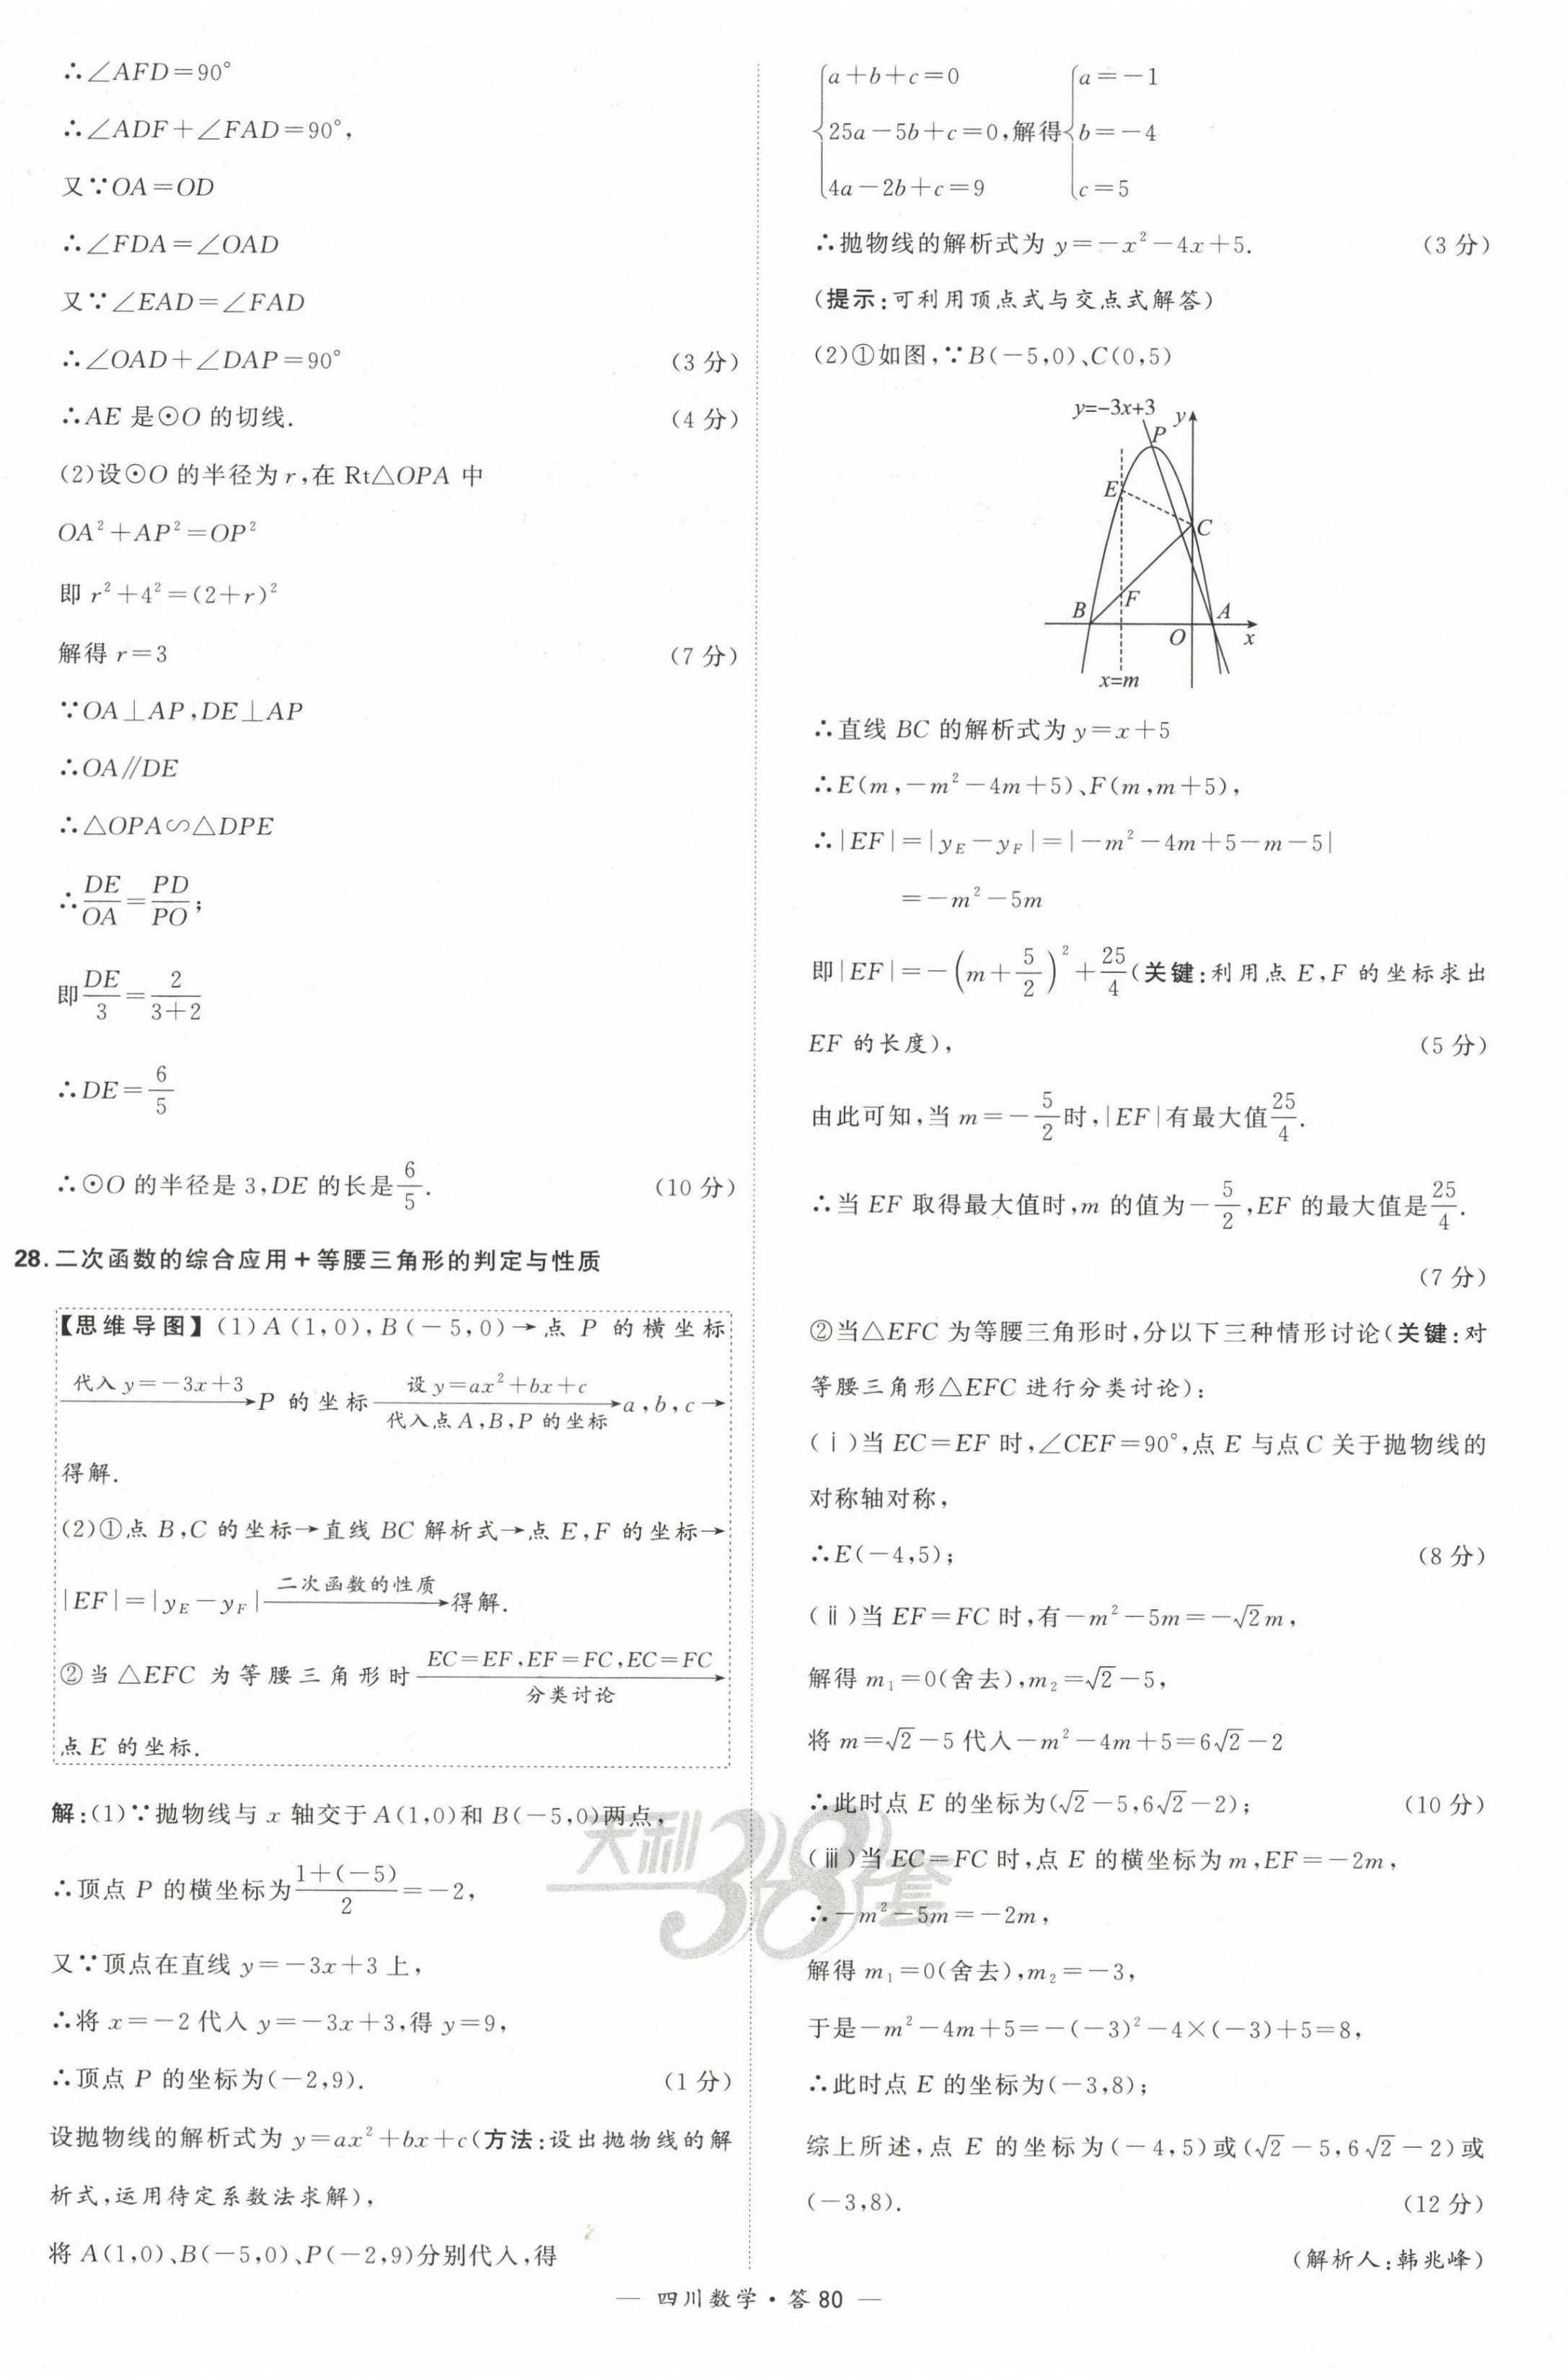 ∴∠AFD=90°
∴∠ADF+∠FAD=90°,
又∵OA=OD
∴∠FDA=∠OAD
又∵∠EAD=∠FAD
∴∠OAD+∠DAP=90° (3分)
∴AE 是⊙O 的切线. (4分)
(2)设⊙O 的半径为 r,在 Rt△OPA 中
OA²+AP²=OP²
即 r²+4²=(2+r)²
解得 r=3 (7分)
∵OA⊥AP,DE⊥AP
∴OA∥DE
∴△OPA∽△DPE
∴DE/OA=PD/PO;
即DE/3=2/(3+2)
∴DE=6/5
∴⊙O 的半径是 3,DE 的长是6/5. (10分)
28.二次函数的综合应用+等腰三角形的判定与性质
【思维导图】(1)A(1,0),B(-5,0)→点 P 的横坐标
代入 y=-3x+3→P 的坐标 设 y=ax²+bx+c 代入点 A,B,P 的坐标→a,b,c→
得解.
(2)①点 B,C 的坐标→直线 BC 解析式→点 E,F 的坐标→
|EF|=|yE-yF| 二次函数的性质→得解.
②当△EFC 为等腰三角形时 EC=EF,EF=FC,EC=FC 分类讨论→
点 E 的坐标.
解:(1)∵抛物线与 x 轴交于 A(1,0)和 B(-5,0)两点,
∴顶点 P 的横坐标为(1+(-5))/2=-2,
又∵顶点在直线 y=-3x+3 上,
∴将 x=-2 代入 y=-3x+3,得 y=9,
∴顶点 P 的坐标为(-2,9). (1分)
设抛物线的解析式为 y=ax²+bx+c(方法:设出抛物线的解
析式,运用待定系数法求解),
将 A(1,0)、B(-5,0)、P(-2,9)分别代入,得
{a+b+c=0 {a=-1
25a-5b+c=0,解得 b=-4
4a-2b+c=9 c=5
∴抛物线的解析式为 y=-x²-4x+5. (3分)
(提示:可利用顶点式与交点式解答)
(2)①如图,∵B(-5,0)、C(0,5)
y=-3x+3 y
P
E
C
F
B A
O x
x=m
∴直线 BC 的解析式为 y=x+5
∴E(m,-m²-4m+5)、F(m,m+5),
∴|EF|=|yE-yF|=|-m²-4m+5-m-5|
=-m²-5m
即|EF|=-(m+5/2)²+25/4(关键:利用点 E,F 的坐标求出
EF 的长度), (5分)
由此可知,当 m=-5/2时,|EF|有最大值25/4.
∴当 EF 取得最大值时,m 的值为-5/2,EF 的最大值是25/4.
(7分)
②当△EFC 为等腰三角形时,分以下三种情形讨论(关键:对
等腰三角形△EFC 进行分类讨论):
(ⅰ)当 EC=EF 时,∠CEF=90°,点 E 与点 C 关于抛物线的
对称轴对称,
∴E(-4,5); (8分)
(ⅱ)当 EF=FC 时,有-m²-5m=-√2m,
解得 m₁=0(舍去),m₂=√2-5,
将 m=√2-5 代入-m²-4m+5=6√2-2
∴此时点 E 的坐标为(√2-5,6√2-2); (10分)
(ⅲ)当 EC=FC 时,点 E 的横坐标为 m,EF=-2m,
∴-m²-5m=-2m,
解得 m₁=0(舍去),m₂=-3,
于是-m²-4m+5=-(-3)²-4×(-3)+5=8,
∴此时点 E 的坐标为(-3,8);
综上所述,点 E 的坐标为(-4,5)或(√2-5,6√2-2)或
(-3,8). (12分)
(解析人:韩兆峰)
天利38套
— 四川数学·答 80 —